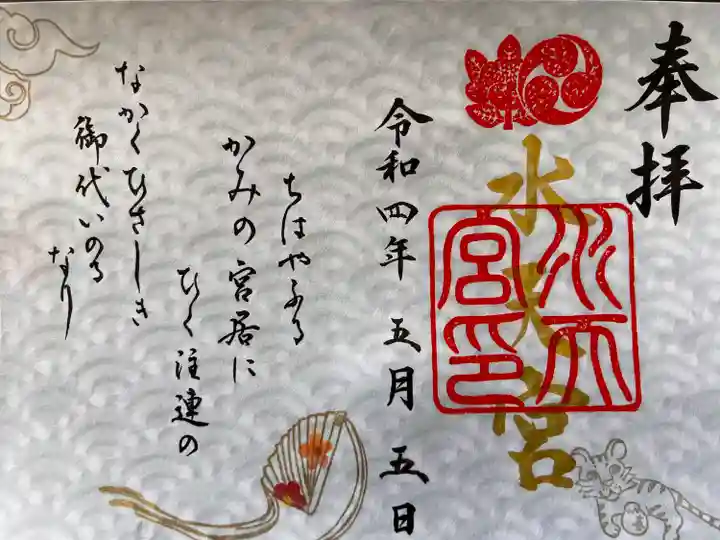 奉拝
水天宮
水天宮印
令和四年 五月 五日
ちはやふる
かみの宮居に
ひく注連の
なかくひさしき
御代いのる
なり